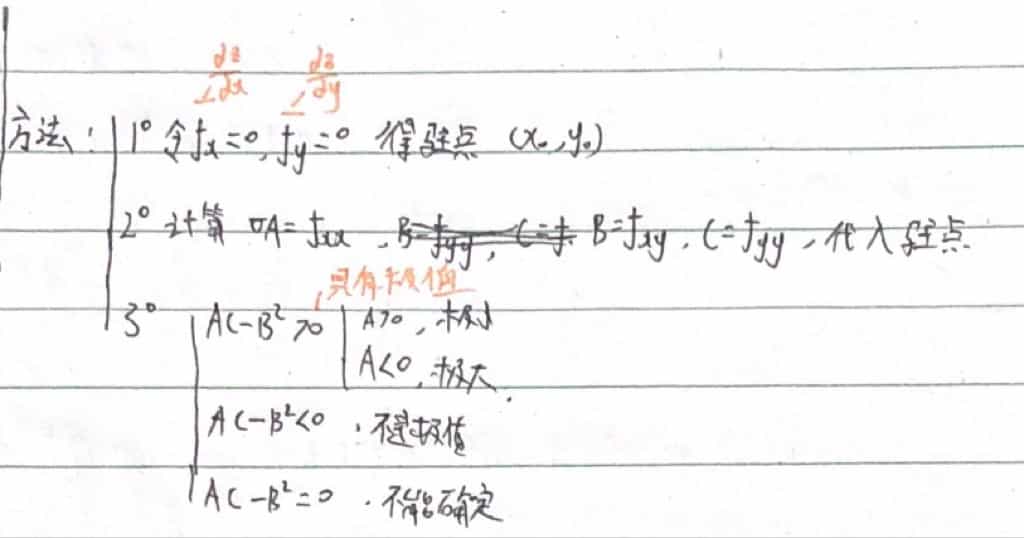 ∂z/∂x ∂z/∂y
方法: 1° 令fx=0, fy=0 得驻点 (x₀, y₀)
2° 计算 A=fxx, B=fyy, C=f B=fxy, C=fyy, 代入驻点.
具有极值
3° AC-B²>0 A>0, 极小
A<0, 极大.
AC-B²<0 . 不是极值
AC-B²=0 . 不能确定